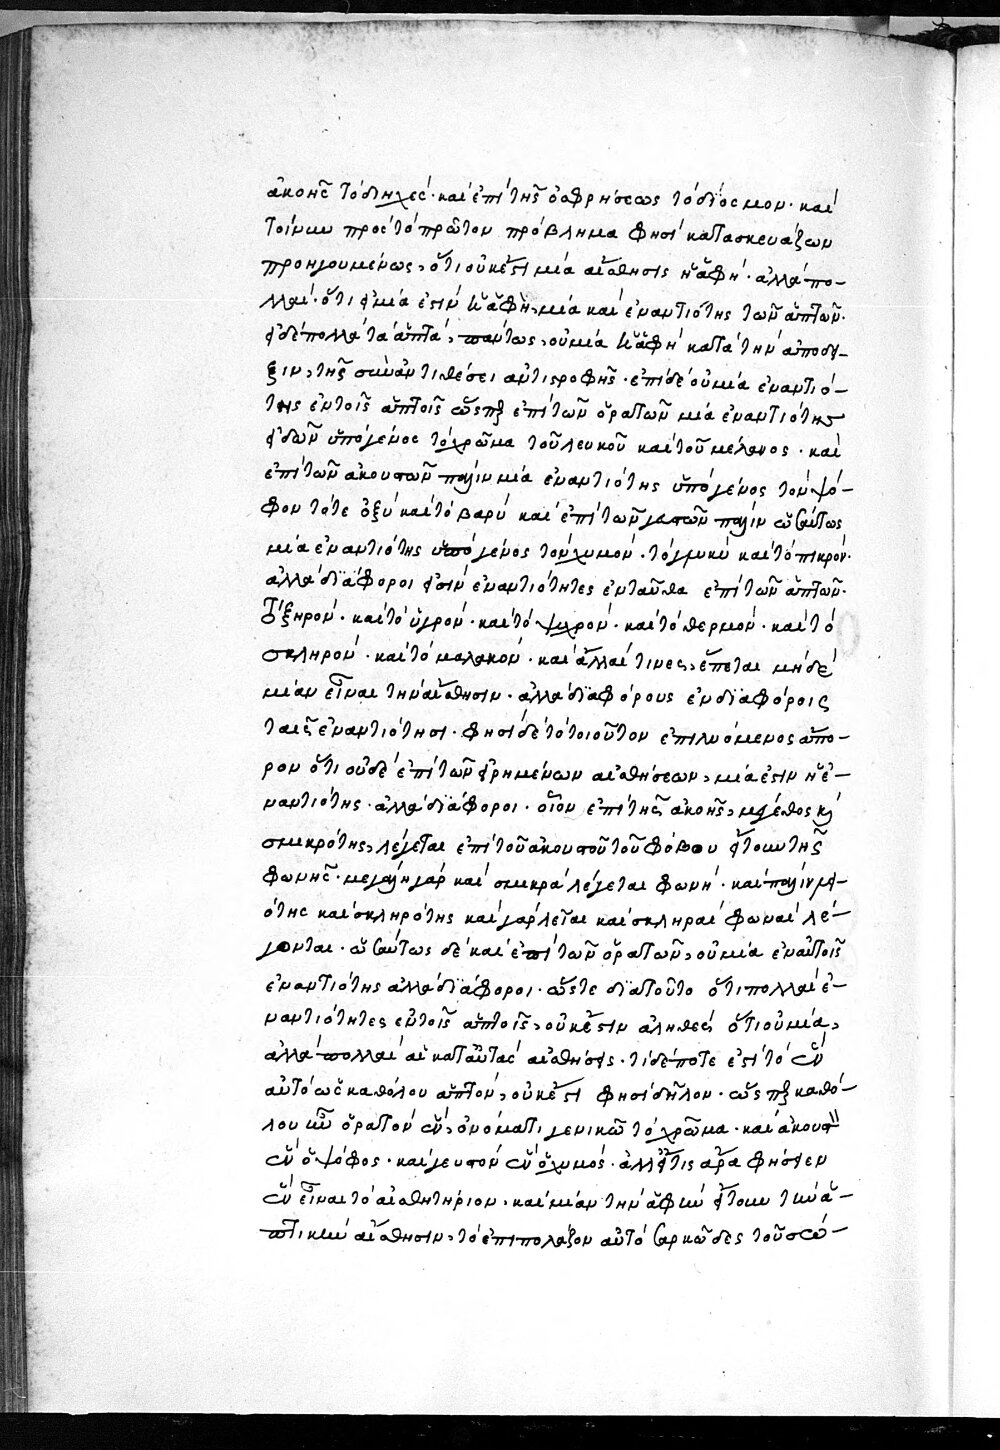 ἀκοῆς τὸ διηχές· καὶ ἐπὶ τῆς ὀσφρήσεως τὸ δίοσμον· καὶ
τοίνυν πρὸς τὸ πρῶτον πρόβλημα φησὶ κατασκευάζων
προηγουμένως, ὅτι οὐκ ἔστι μία αἴσθησις ἡ ἁφή· ἀλλὰ πο-
λλαί· ὅτι εἰ μία ἐστὶν ἡ ἁφὴ, μία καὶ ἐναντιότης τῶν ἁπτῶν·
εἰ δὲ πολλὰ τὰ ἁπτά, πάντως, οὐ μία ἡ ἁφή κατὰ τὴν ἀπόδει-
ξιν, τῆς σὺν ἀντιθέσει ἀντιστροφῆς· ἐπεὶ δὲ οὐ μία ἐναντιό-
της ἐν τοῖς ἁπτοῖς ὥσπερ ἐπὶ τῶν ὁρατῶν μία ἐναντιότης
εἰδῶν ὑπὸ γένος τὸ χρῶμα τοῦ λευκοῦ καὶ τοῦ μέλανος· καὶ
ἐπὶ τῶν ἀκουστῶν πάλιν μία ἐναντιότης ὑπὸ γένος τὸν ψό-
φον τό τε ὀξὺ καὶ τὸ βαρύ καὶ ἐπὶ τῶν γευστῶν πάλιν ὡσαύτως
μία ἐναντιότης ὑπὸ γένος τὸν χυμόν· τὸ γλυκὺ καὶ τὸ πικρόν·
ἀλλὰ διάφοροι εἰσὶν ἐναντιότητες ἐνταῦθα ἐπὶ τῶν ἁπτῶν·
τὸ ξηρόν· καὶ τὸ ὑγρόν· καὶ τὸ ψυχρόν· καὶ τὸ θερμόν· καὶ τὸ
σκληρόν· καὶ τὸ μαλακόν· καὶ ἄλλαί τινες, ἕπεται μηδὲ
μίαν εἶναι τὴν αἴσθησιν· ἀλλὰ διαφόρους ἐν διαφόροις
ταῖς ἐναντιότησι· φησὶ δὲ τὸ τοιοῦτον ἐπιλυόμενος ἄπο-
ρον ὅτι οὐδὲ ἐπὶ τῶν εἰρημένων αἰσθήσεων, μία ἐστὶν ἡ ἐ-
ναντιότης· ἀλλὰ διάφοροι· οἷον ἐπὶ τῆς ἀκοῆς, μέγεθος καὶ
σμικρότης, λέγεται ἐπὶ τοῦ ἀκουστοῦ τοῦ φόβου ἤτουν τῆς
φωνῆς· μεγάλη γὰρ καὶ σμικρὰ λέγεται φωνή· καὶ πάλιν λει-
ότης καὶ σκληρότης καὶ γὰρ λεῖαι καὶ σκληραὶ φωναὶ λέ-
γονται· ὡσαύτως δὲ καὶ ἐπὶ τῶν ὁρατῶν, οὐ μία ἐν αὐτοῖς
ἐναντιότης ἀλλὰ διάφοροι· ὥστε διατοῦτο ὅτι πολλαὶ ἐ-
ναντιότητες ἐν τοῖς ἁπτοῖς, οὐκ ἔστιν ἀληθὲς ὅτι οὐ μία,
ἀλλὰ πολλαὶ αἱ κατ' αὐτὰς αἰσθήσεις· τί δέποτε ἐστὶ τὸ ἓν
αὐτὸ ὡς καθόλου ἁπτόν, οὐκ ἔστι φησὶ δῆλον· ὥσπερ καθό-
λου ἦν ὁρατὸν ἓν, ὀνόματι γενικῶ τὸ χρῶμα· καὶ ἀκουστὸν
ἓν ὁ ψόφος· καὶ γευστὸν ἓν ὁ χυμός· ἀλλ' εἴ τις ἄρα φήσειεν
ἓν εἶναι τὸ αἰσθητήριον· καὶ μίαν τὴν ἁφὴν ἤτουν τὴν ἁ-
πτικὴν αἴσθησιν, τὸ ἐπιπολάζον αὐτὸ σαρκῶδες τοῦ σώ-